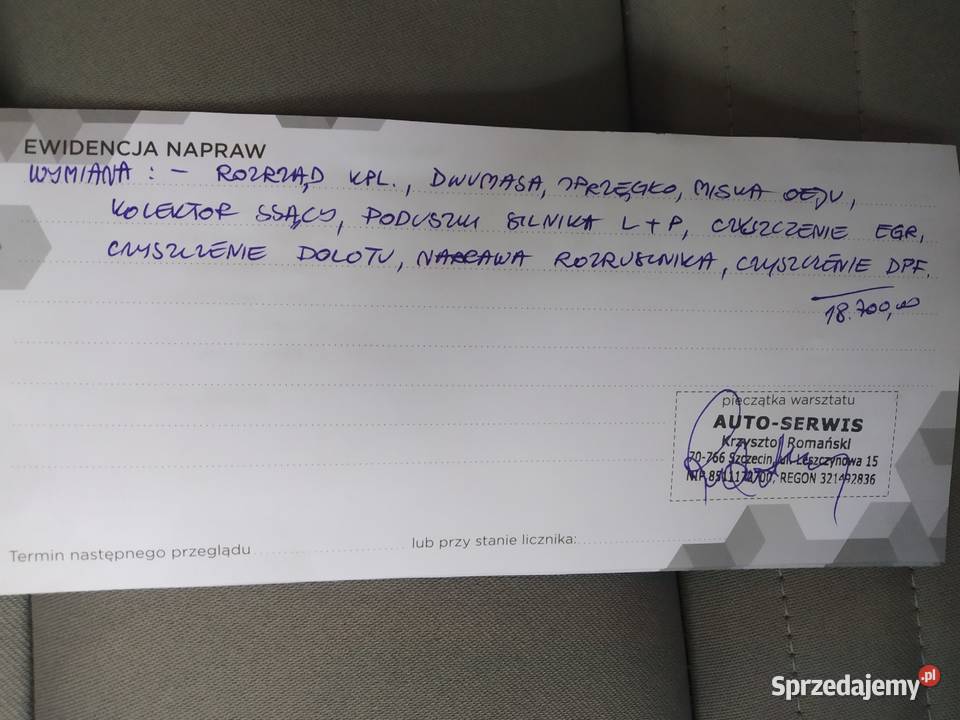 EWIDENCJA NAPRAW
WYMIANA : – ROZRZĄD KPL., DWUMASA, SPRZĘGŁO, MISKA OLEJU,
KOLEKTOR SSĄCY, PODUSZKI SILNIKA L+P, CZYSZCZENIE EGR,
CZYSZCZENIE DOLOTU, NAPRAWA ROZRUSZNIKA, CZYSZCZENIE DPF.
18.700,00
pieczątka warsztatu
AUTO-SERWIS
Krzysztof Romański
70-766 Szczecin, ul. Leszczynowa 15
NIP 8511172700, REGON 321492836
Termin następnego przeglądu lub przy stanie licznika:
Sprzedajemy.pl